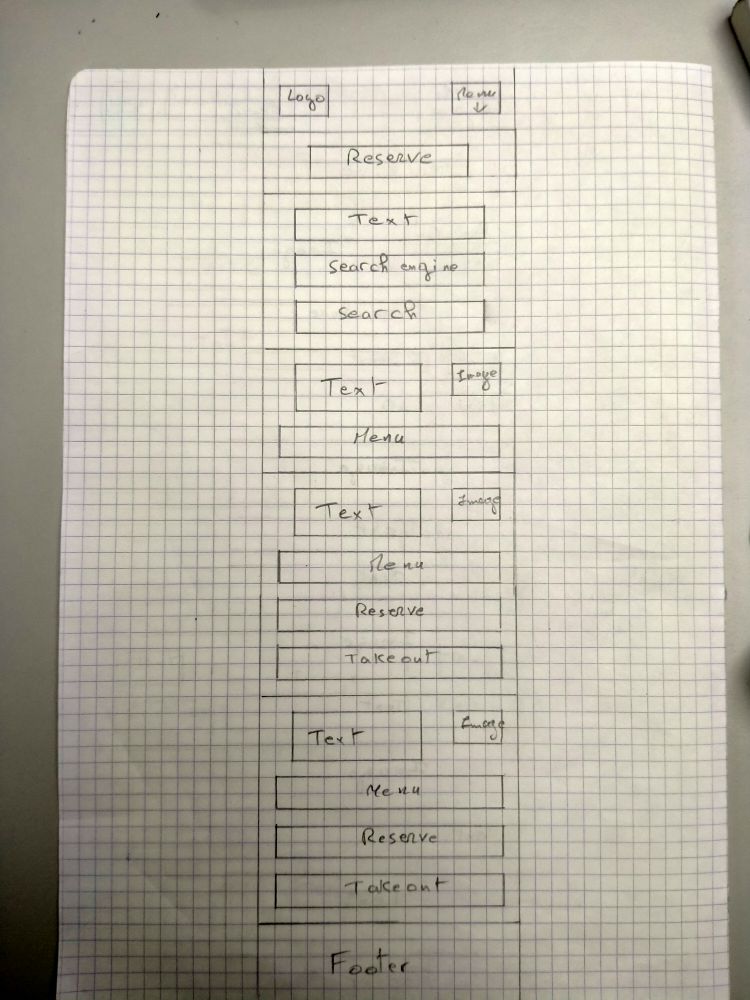 Logo
Menu
Reserve
Text
Search engine
Search
Text
Image
Menu
Text
Image
Menu
Reserve
Takeout
Text
Image
Menu
Reserve
Takeout
Footer